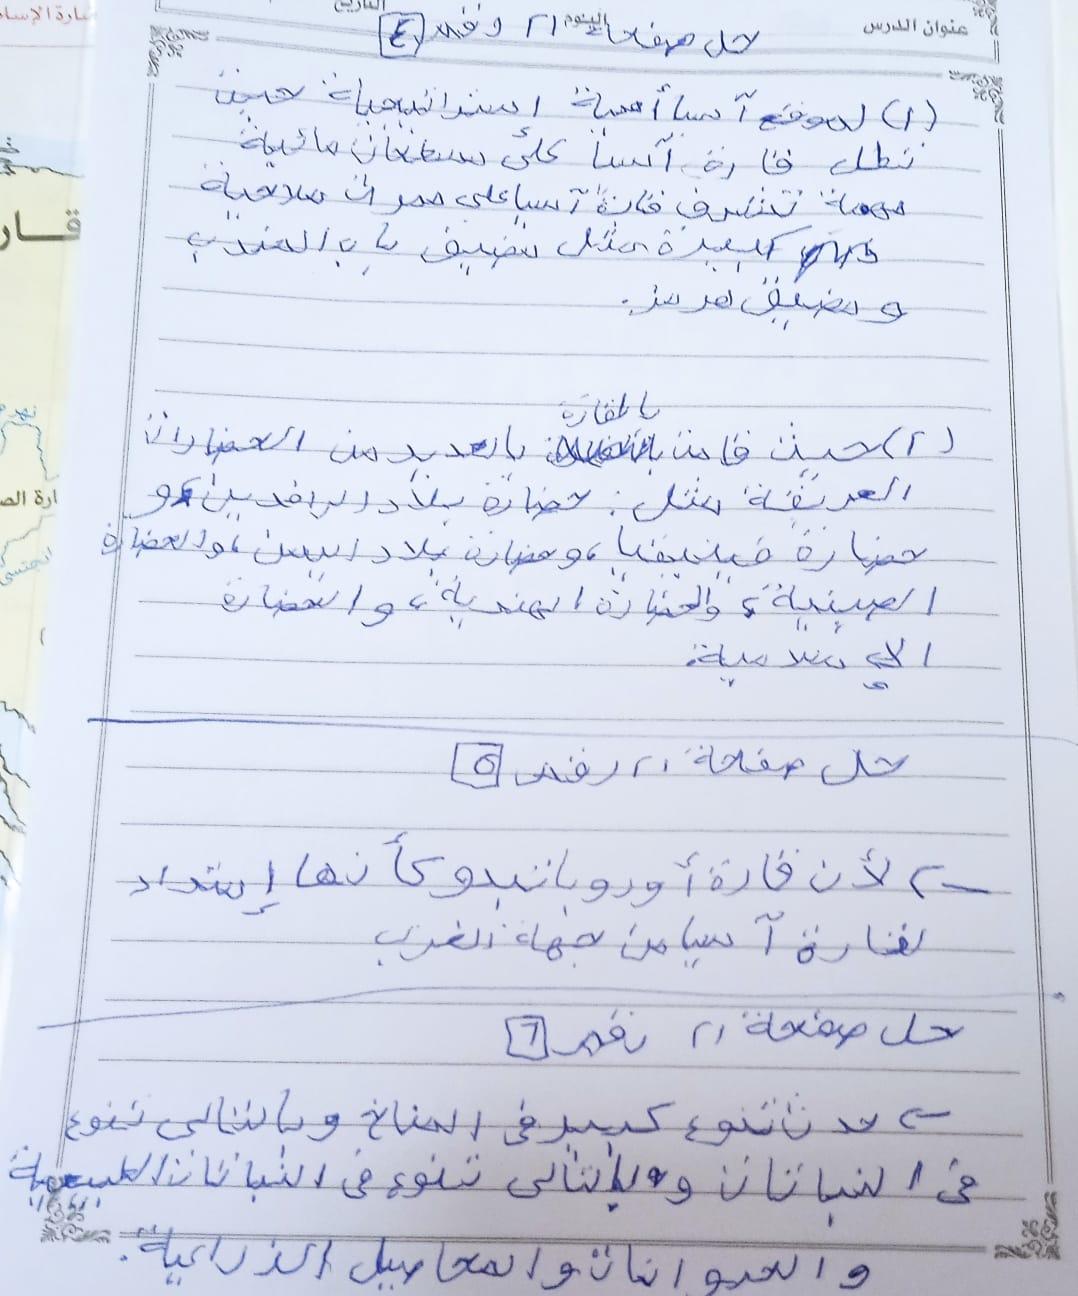 عنوان الدرس
اليوم
التاريخ
حل صفحة ٢١ رقم ٤
(١) لموقع آسيا أهمية استراتيجية حيث
تطل قارة آسيا على مسطحات مائية
مهمة تشرف قارة آسيا على ممرات ملاحية
كبيرة مثل مضيق باب المندب
و مضيق هرمز.
بالقارة
(٢) حيث قامت بالعديد من الحضارات
العريقة مثل: حضارة بلاد الرافدين، و
حضارة فينيقيا، وحضارة بلاد اليمن، والحضارة
الصينية، والحضارة الهندية، والحضارة
الإسلامية.
حل صفحة ٢١ رقم ٥
٢- لأن قارة أوروبا تبدو كأنها إمتداد
لقارة آسيا من جهة الغرب
حل صفحة ٢١ رقم 7
حدث تنوع كبير في المناخ وبالتالى تنوع
فى النباتات وبالتالى تنوع فى النباتات الطبيعية
والحيوانات والمحاصيل الزراعية.
قار